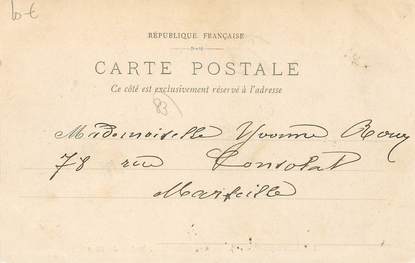 10 €
RÉPUBLIQUE FRANÇAISE
CARTE POSTALE
Ce côté est exclusivement réservé à l'adresse
83
Mademoiselle Yvonne Roux
78 rue Consolat
Marseille